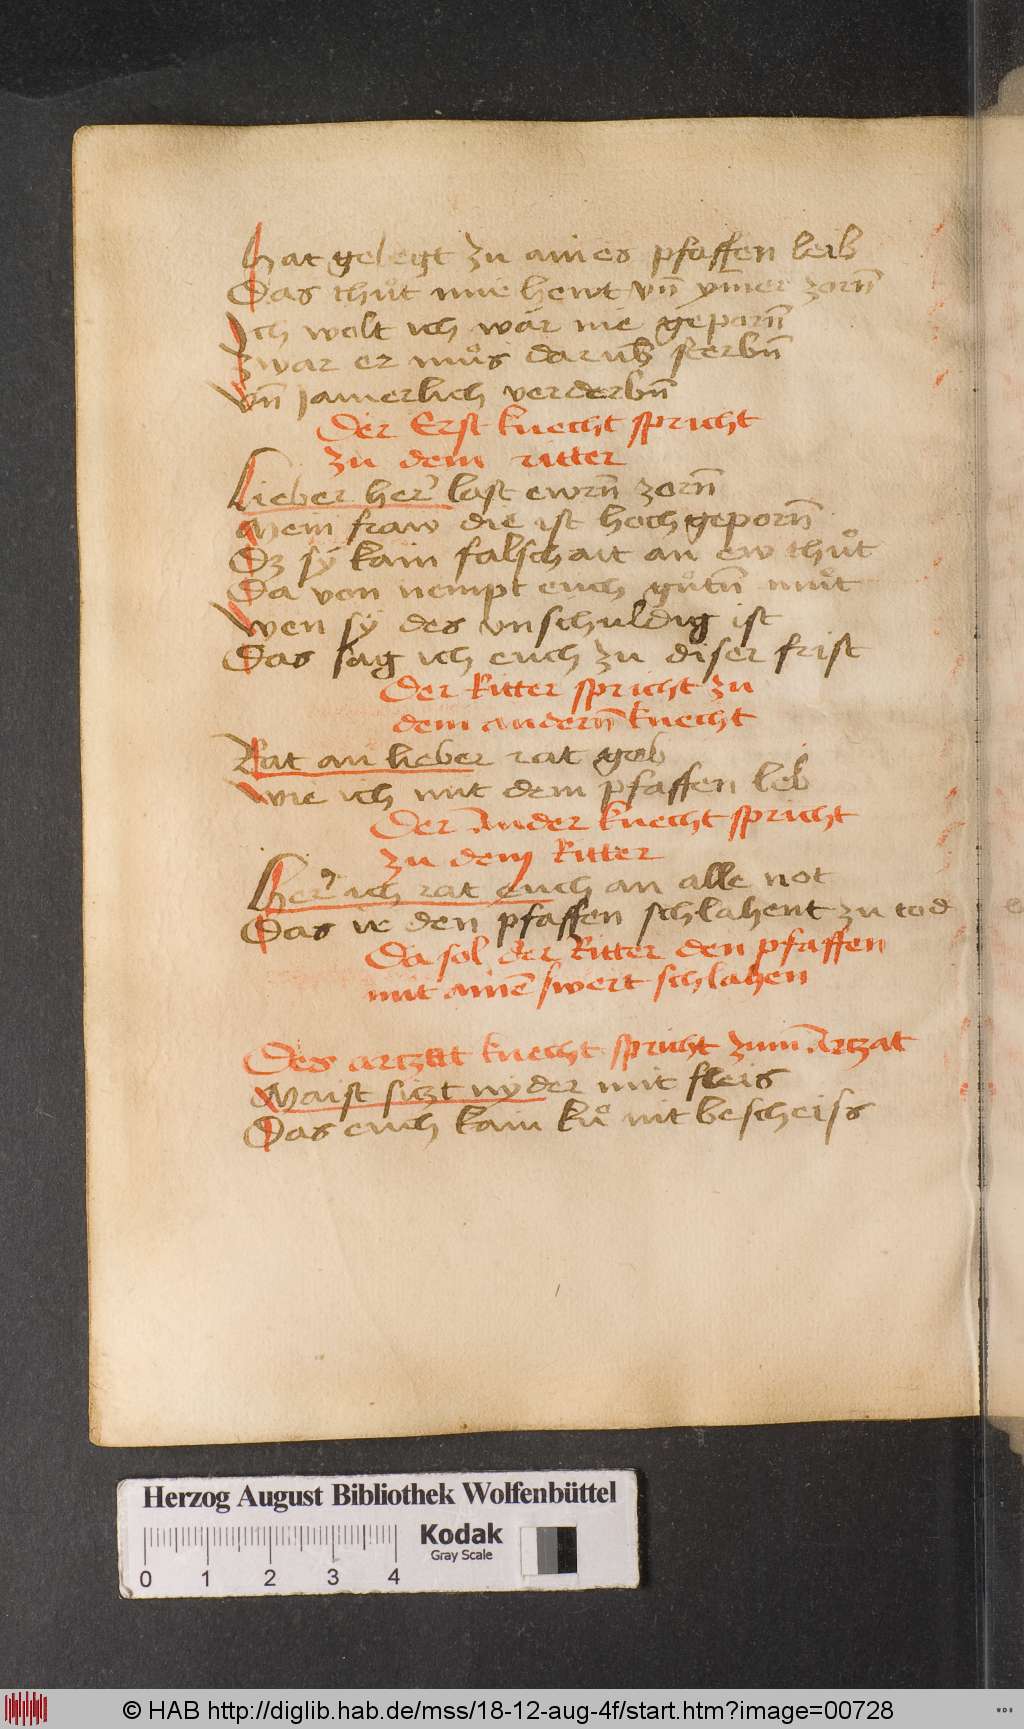 hat gelegt zu aines pfaffen leib
Das thůt mir hewt vn̄ ym̄er zorn̄
Ich wolt ich wär nie geporn̄
Zwar er můs darūb sterbn̄
Vn̄ Jamerlich verderbn̄
Der Erst knecht spricht
zu dem ritter
Lieber her͛ last ewrn̄ zorn̄
Mein fraw die ist hochgeporn̄
Dz sÿ kain falschait an ew thůt
Da von nempt euch gůtn̄ můt
Wen sÿ des vnschuldig ist
Das sag ich euch zu diser frist
Der Ritter spricht zu
dem andern̄ knecht
Rat an lieber rat geb
wie ich mit dem pfaffen leb
Der Ander knecht spricht
zu dem Ritter
Her͛ ich rat euch an alle not
Das ir den pfaffen schlahent zu tod
Da sol der Ritter den pfaffen
mit ainē swert schlahen
Des arczat knecht spricht zum̄ Arczat
Maist siczt nyder mit fleis
Das euch kain ků nit bescheiss
Herzog August Bibliothek Wolfenbüttel
Kodak
Gray Scale
0 1 2 3 4
© HAB http://diglib.hab.de/mss/18-12-aug-4f/start.htm?image=00728